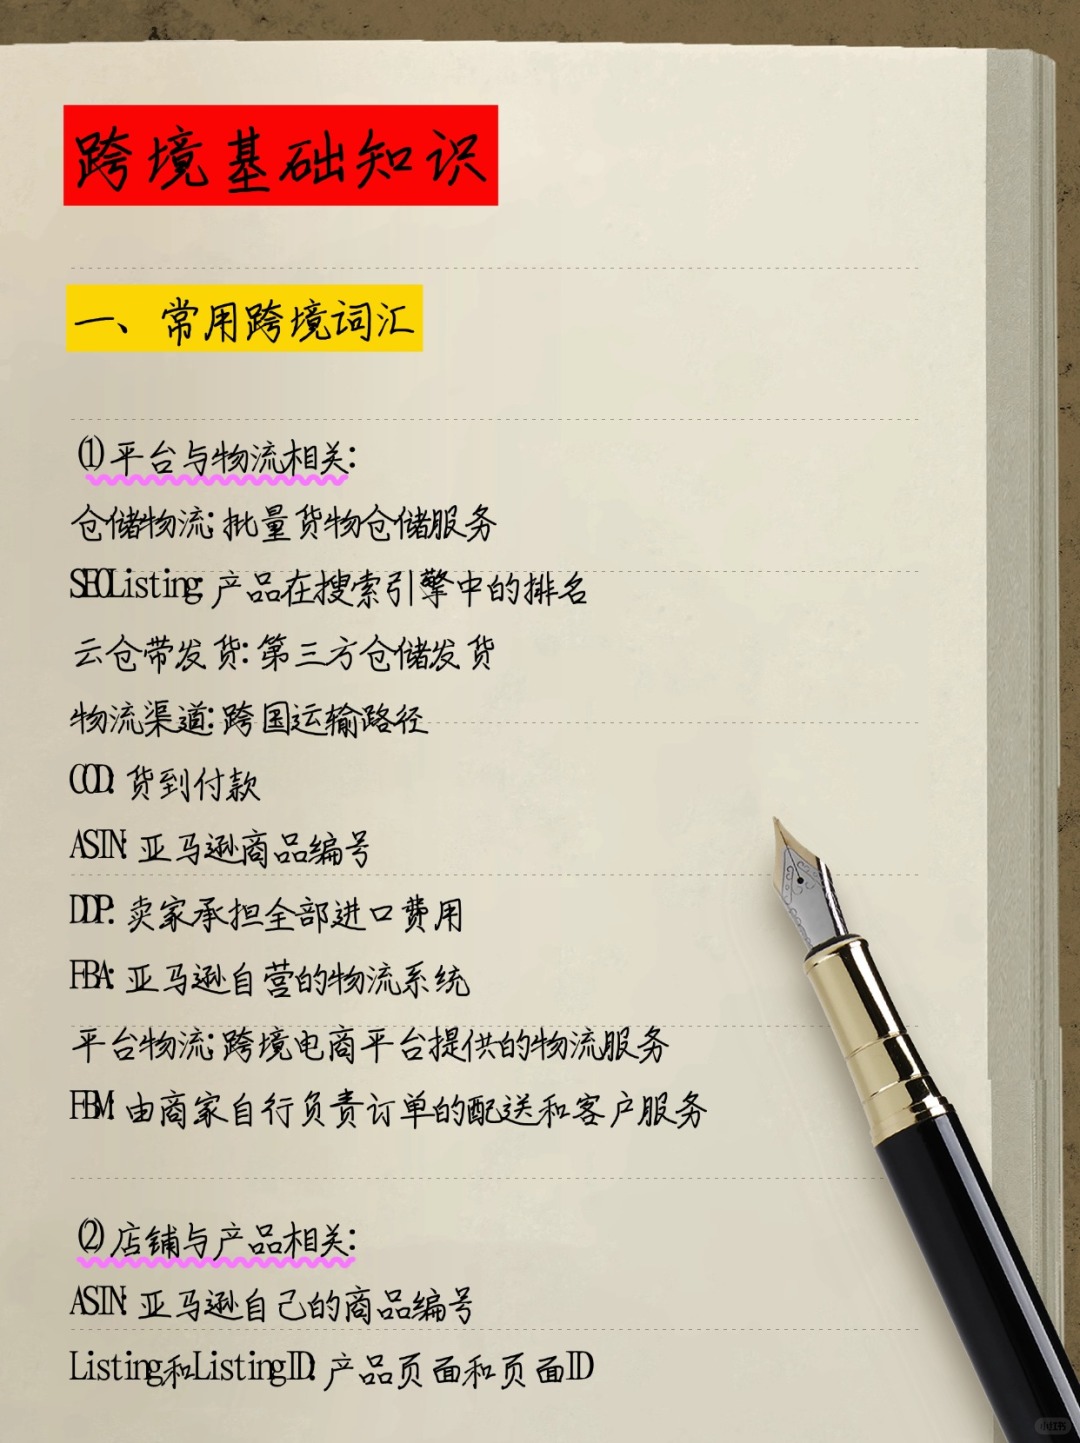 跨境基础知识
一、常用跨境词汇
(1)平台与物流相关:
仓储物流:批量货物仓储服务
SEOListing:产品在搜索引擎中的排名
云仓带发货:第三方仓储发货
物流渠道:跨国运输路径
COD:货到付款
ASIN:亚马逊商品编号
DDP:卖家承担全部进口费用
FBA:亚马逊自营的物流系统
平台物流:跨境电商平台提供的物流服务
FBM:由商家自行负责订单的配送和客户服务
(2)店铺与产品相关:
ASIN:亚马逊自己的商品编号
Listing和ListingID:产品页面和页面ID
小红书